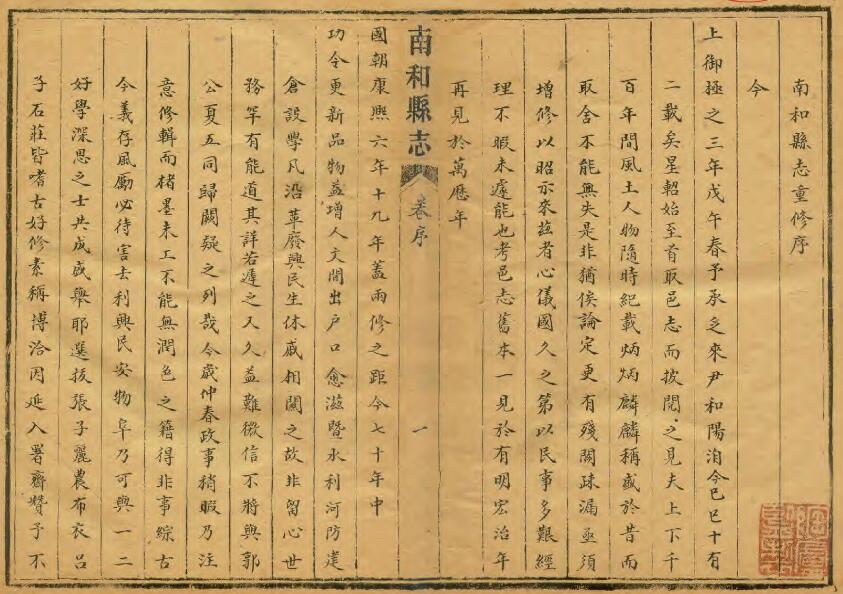 南和縣志重修序
今
上御極之三年戊午春予承乏來尹和陽洎今己巳十有
二載矣星軺始至首取邑志而披閱之見夫上下千
百年間風土人物隨時紀載炳炳麟麟稱盛於昔而
取舍不能無失是非猶俟論定更有殘闕疎漏亟須
增修以昭示來茲者心儀國久之第以民事多艱經
理不暇未遽能也考邑志舊本一見於有明宏治年
再見於萬歷年
南和縣志
卷序
一
國朝康熙六年十九年葢兩修之距今七十年中
功令更新品物益增人文間出戶口愈滋暨水利河防建
倉設學凡沿革廢興民生休戚相關之故非留心世
務罕有能道其詳若遲之又久益難徵信不將與郭
公夏五同歸闕疑之列哉今歲仲春政事稍暇乃注
意修輯而楮墨未工不能無潤色之籍得非事綜古
今義存風勵必待害去利興民安物阜乃可與一二
好學深思之士共成盛舉耶選拔張子麗農布衣呂
子石莊皆嗜古好修素稱博洽因延入署齋贊予不